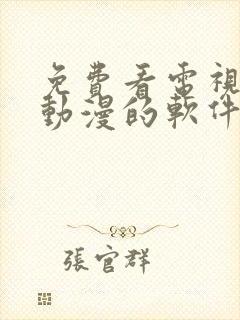 免費看電視
動漫的軟件
張官群